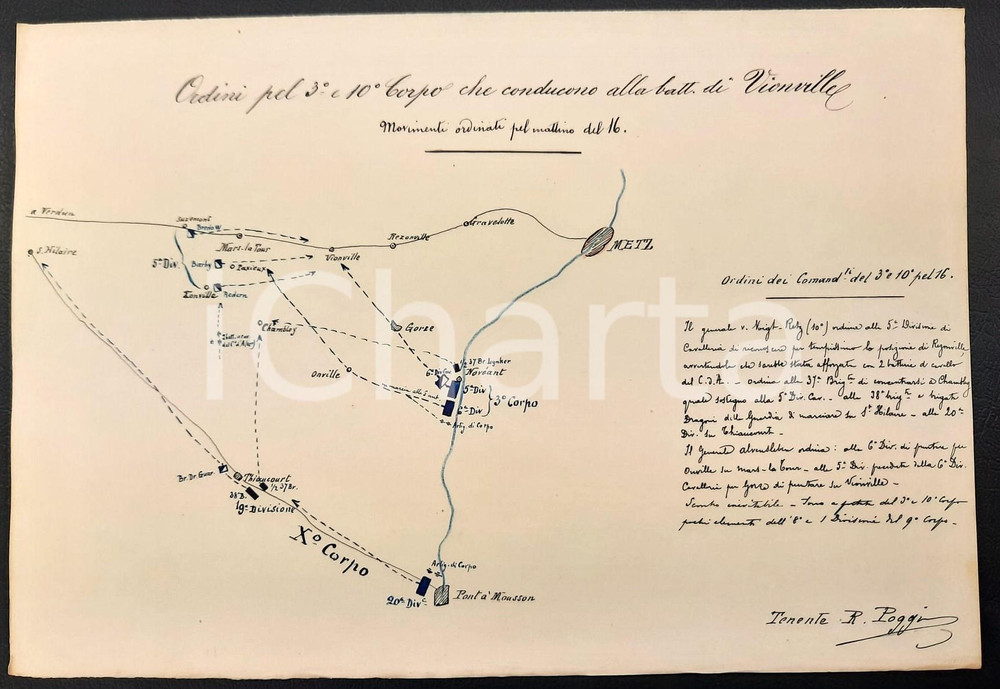 Ordini pel 3° e 10° Corpo che conducono alla batt. di Vionville
Movimenti ordinati pel mattino del 16.
a Verdun
S. Hilaire
Bredow
Mars-la-Tour
Vionville
Rezonville
Gravelotte
METZ
5ª Div.
Barby
Puxieux
Redern
Chambley
Gorze
Onville
½ 37 Br. Lynker
Novéant
5ª Div
6ª Div
3° Corpo
Artig. di Corpo
Br. Dr. Guar.
Thiaucourt
½ 37 Br.
38 B.
19ª Divisione
X° Corpo
Artig. di Corpo
20ª Div
Pont à Mousson
iCharta
Ordini dei Comand.ti del 3° e 10° pel 16.
Il generale v. Voigt-Retz (10°) ordina alla 5ª Divisione di
Cavalleria di riconoscere per tempissimo la posizione di Rezonville,
avvertendola che sarebbe stata afforzata con 2 batterie a cavallo
del C.d'A. - ordina alla 37ª Brig.ta di concentrarsi a Chambley
quale sostegno alla 5ª Div. Cav. - alla 38ª brig.ta e brigata
Dragoni della Guardia di marciare su St Hilaire - alla 20ª
Div. su Thiaucourt -
Il Generale Alvensleben ordina: alla 6ª Div. di puntare per
Onville su Mars-la-Tour - alla 5ª Div. preceduta dalla 6ª Div.
Cavalleria per Gorze di puntare su Vionville -
inevitabile - del 3° e 10° Corpo
pochi elementi dell'8° e 1 Divisione del 9° Corpo -
Tenente R. Poggi